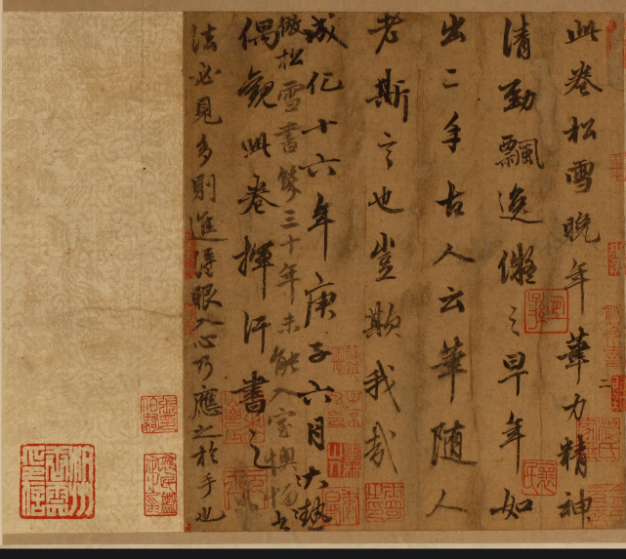 此卷松雪晚年筆力精神
清勁飄逸儗之早年如
出二手古人云筆隨人
老斯言也豈欺我哉
成化十六年庚子六月大熱
倣松雪書幾三十年未能入室
偶觀此卷揮汗書之
法必見多則進得眼入心乃應之於手也